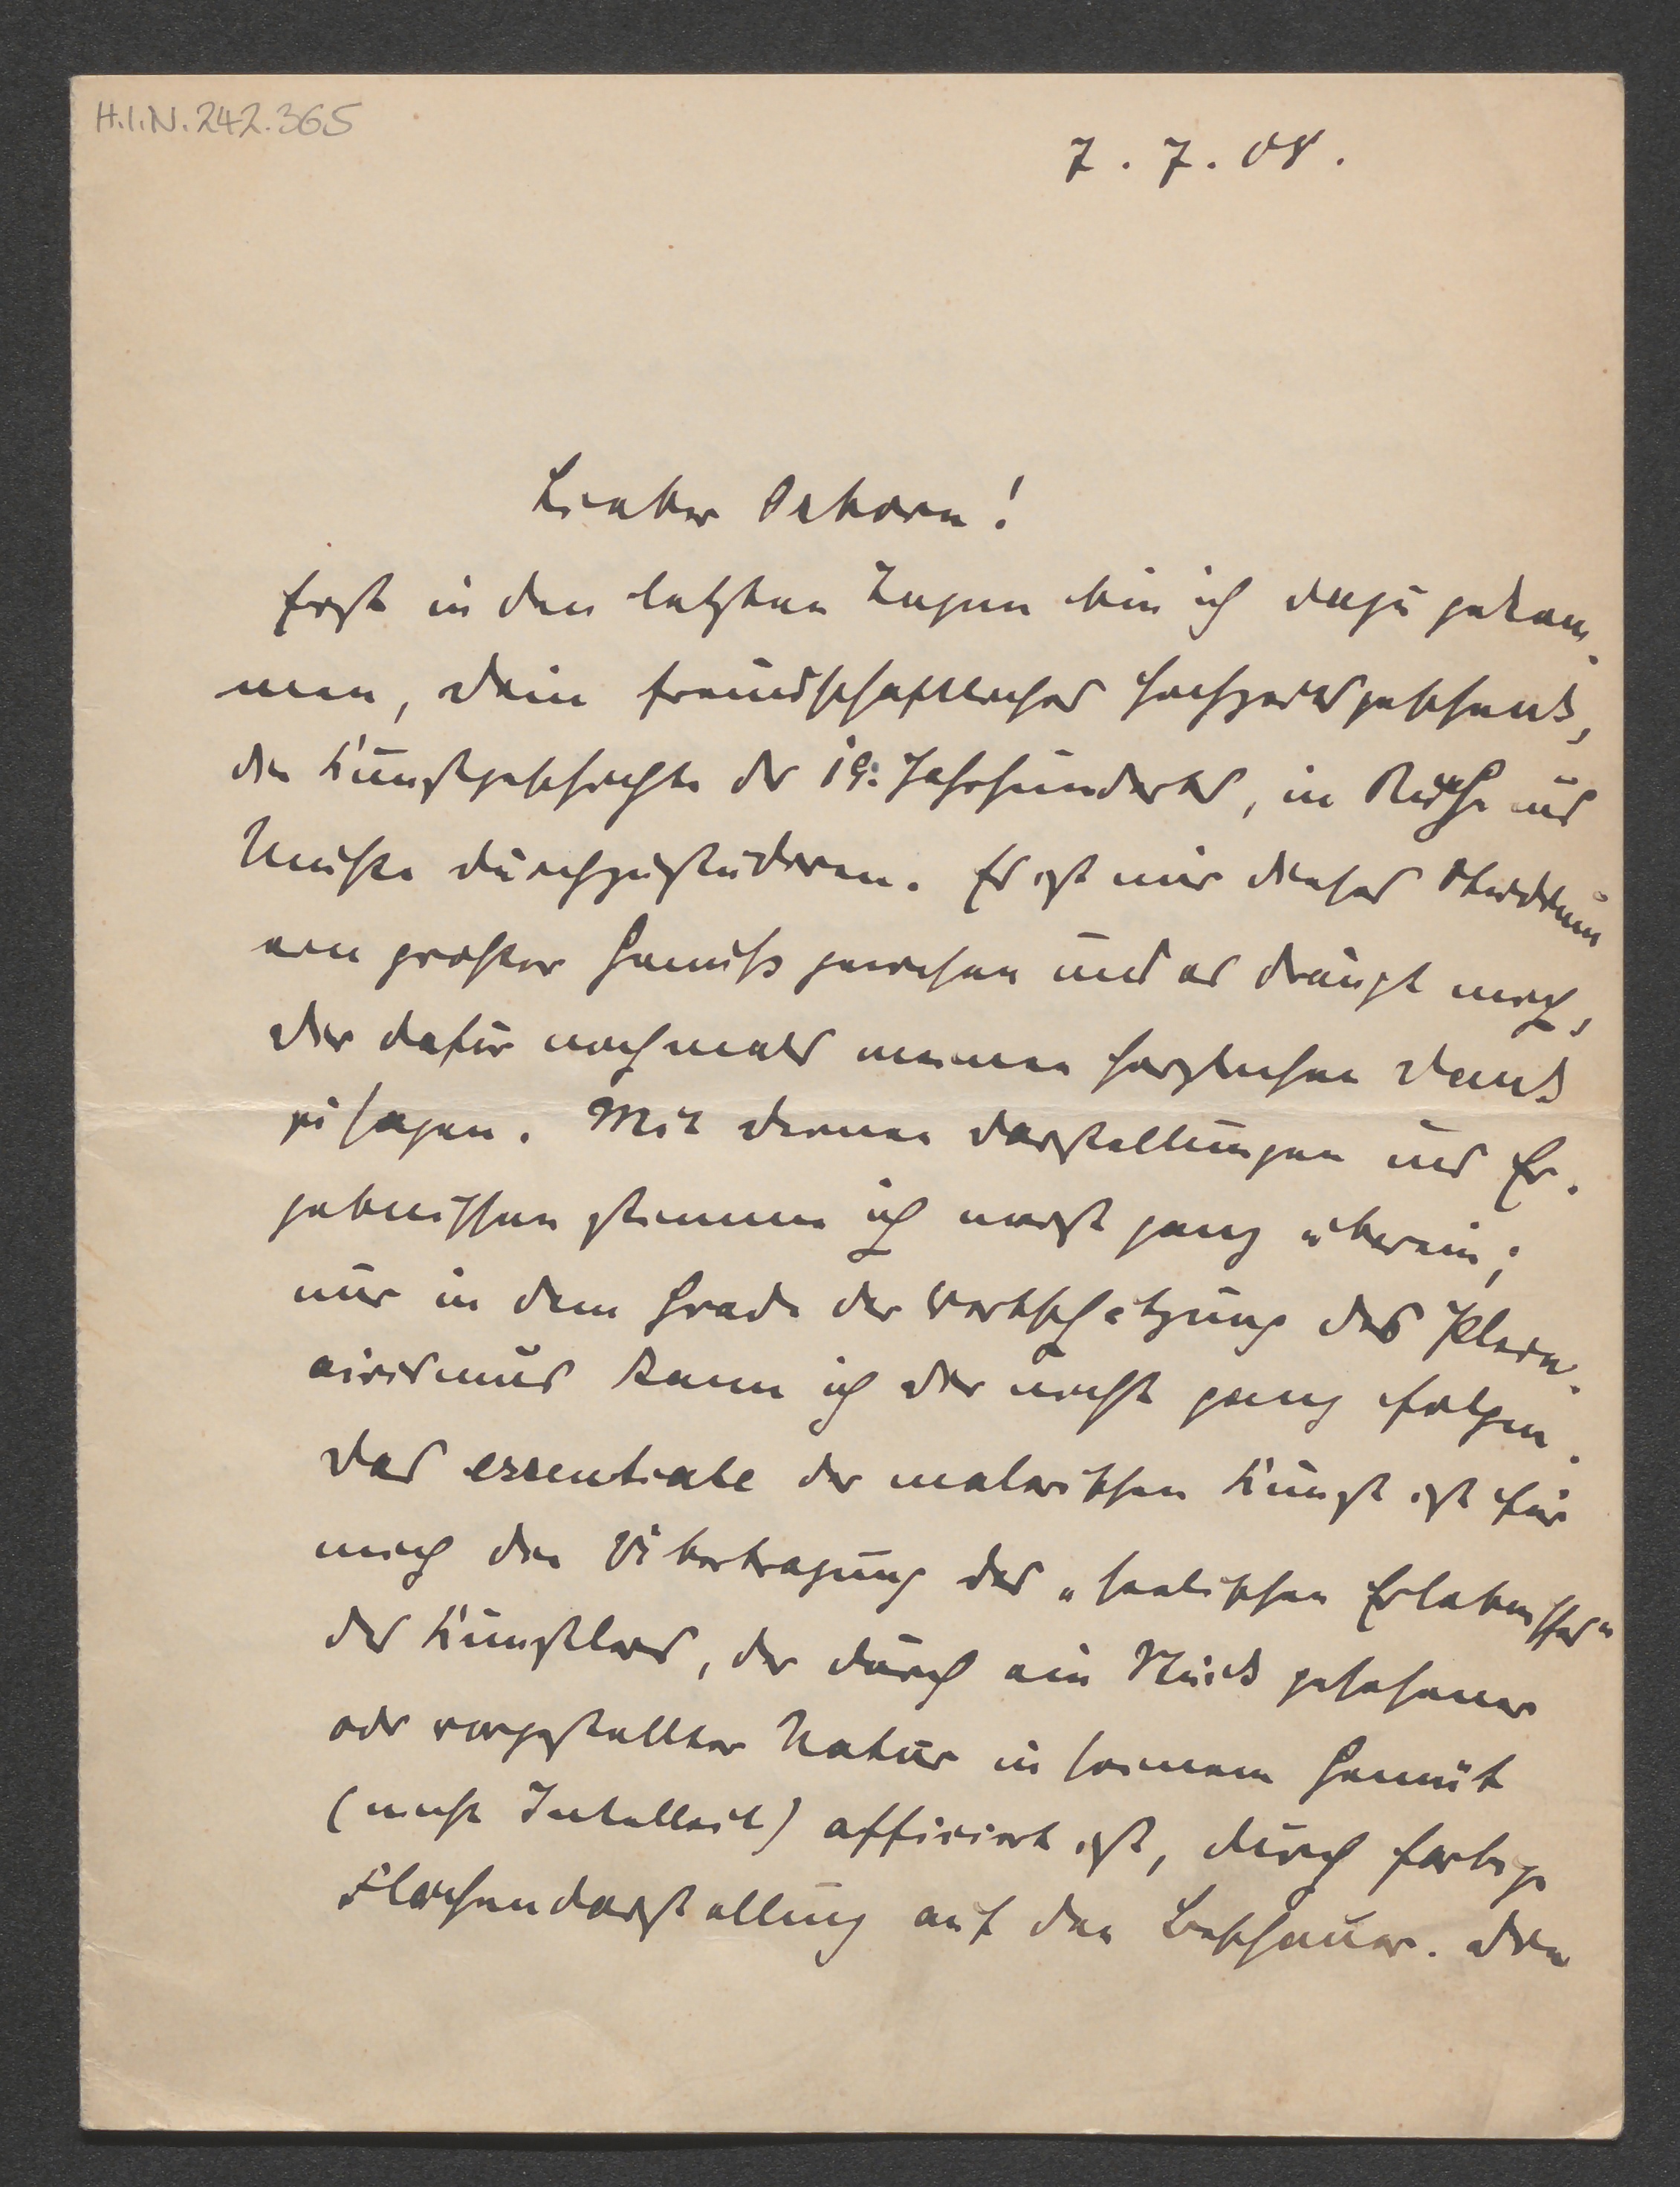 H.I.N. 242.365
7. 7. 08.
Lieber Osborn!
Erst in den letzten Tagen bin ich dazu gekom-
men, dein freundschaftliches Hochzeitsgeschenk,
die Kunstgeschichte des 19. Jahrhunderts, in Ruhe und
Musse durchzustudieren. Es ist mir dieses Studium
ein grosser Genuss gewesen und es drängt mich,
dir dafür nochmals meinen herzlichen Dank
zu sagen. Mit deinen Darstellungen und Er-
gebnissen stimme ich meist ganz überein;
nur in dem Grade der Wertschätzung des Plein-
airismus kann ich dir nicht ganz folgen.
Das essentiale der malerischen Kunst ist für
mich die Übertragung des „seelischen Erlebnisses"
des Künstlers, der durch ein Stück gesehener
oder vorgestellter Natur in seinem Gemüt
(nicht Intellect) afficiert ist, durch farbige
Flächendarstellung auf den Beschauer. Die